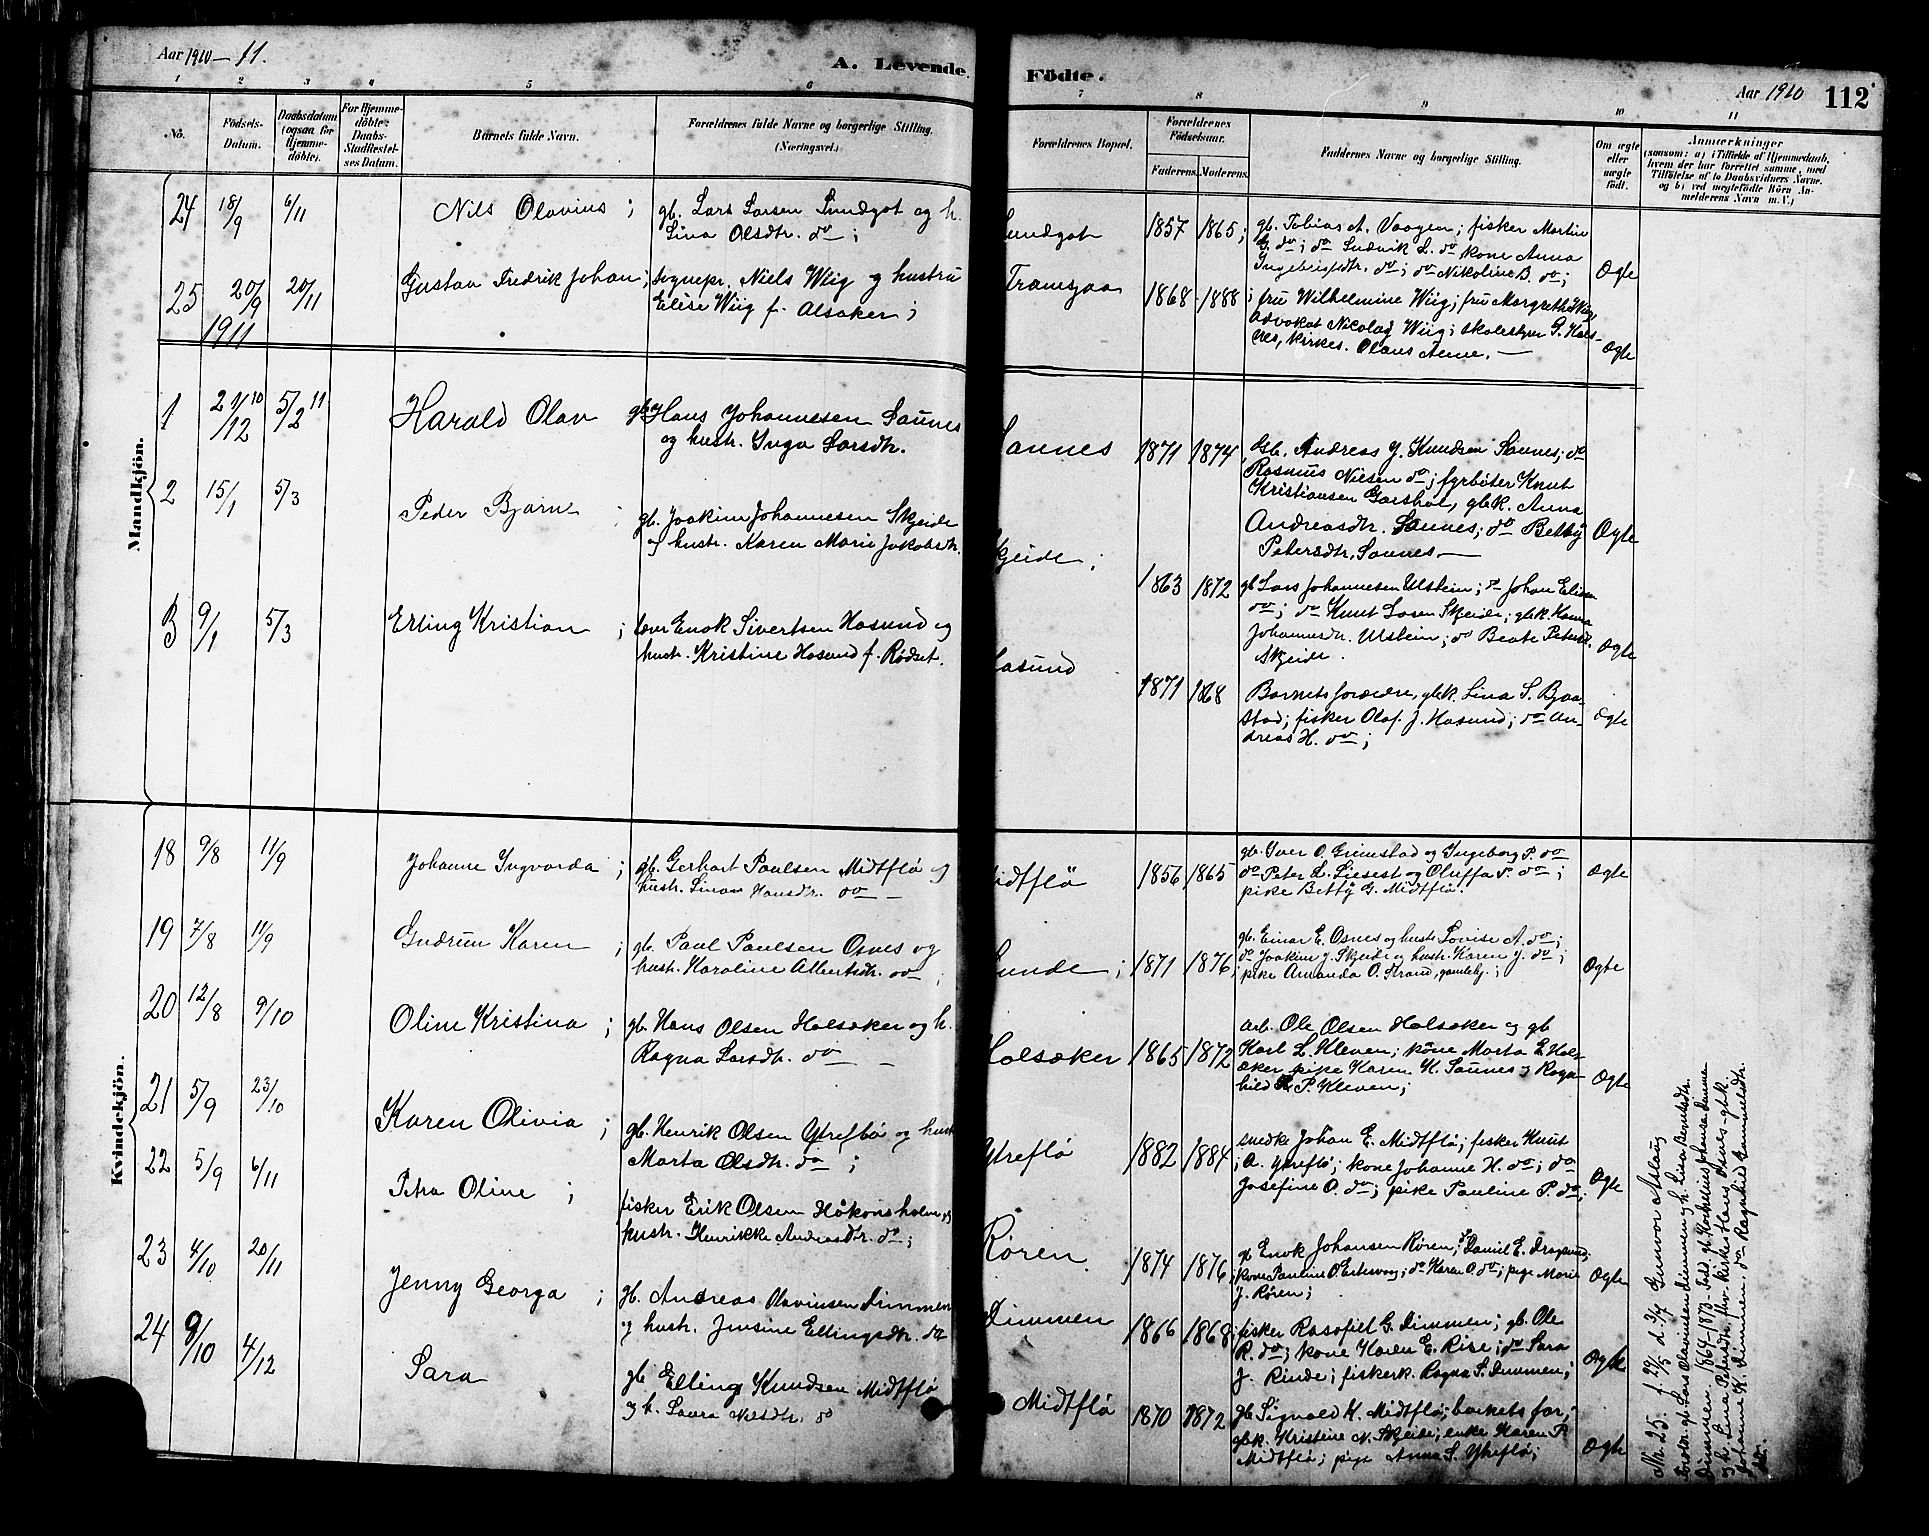 Aar 1910 - 11.
A. Levende Födte.
Aar 1910 112
1 2 3 4 5 6 7 8 9 10 11
No.
Födsels-Datum.
Daabsdatum (ogsaa for Hjemmedöbte).
For Hjemmedöbte: Daabs-Stadfæstelses Datum.
Barnets fulde Navn.
Forældrenes fulde Navne og borgerlige Stilling. (Næringsvei.)
Forældrenes Bopæl.
Forældrenes Födselsaar.
Faderens. Moderens.
Faddernes Navne og borgerlige Stilling.
Om ægte eller uægte födt.
Anmærkninger
(saasom: a) i Tilfælde af Hjemmedaab, hvem der har forrettet samme, med Tilföielse af to Daabsvidners Navne, og b) ved uegtefödte Börn Anmelderens Navn m. V.)
Mandkjön.
24 18/9 6/11 Nils Olavius; gb. Lars Larsen Sundgot og h.
Lina Olsdtr. do;
Sundgot 1857 1865; gb. Tobias A. Vaagen; fisker Martin
G. do; do Ludvik L. do kone Anna
Ingebrigtdtr. do; do Nikoline B. do; Ægte
25 20/9 20/11 Gustav Fredrik Johan; sognepr. Niels Wiig og hustru
Elise Wiig f. Alsaker;
1868 1888; fru Wilhelmine Wiig; fru Margrethe Wiig,
advokat Nicolay Wiig; skolestyrer G. Hars-
nes, kirkes. Olaus Aune. — Ægte
1911
1 21/12 10 5/2 11 Harald Olav gb. Hans Johannesen Saunes
og hustr. Inga Larsdtr.
Saunes 1871 1874 gb. Andreas J. Knudsen Saunes; do
Rasmus Nielsen do; fyrböter Knut
Kristiansen Garshol, gbk. Anna
Andreasdtr. Saunes; do Betty
Petersdtr. Saunes — Ægte
2 15/1 5/3 Peder Bjarne; gb. Joakim Johannesen Skjeide
og hustr. Karen Marie Jakobsdtr.
Skjeide; 1863 1872 gb Lars Johannesen Ulstein; do Johan Elias
do; do Knut Larsen Skjeide; gbk. Hanna
Johannesdtr. Ulstein; do Beate Petersdtr.
Skjeide. Ægte
3 9/1 5/3 Erling Kristian; lærer Enok Sivertsen Hasund og
hustr. Kristine Hasund f. Rødset.
Hasund 1871 1868 Barnets forældre, gbk. Lina S. Bjaa-
stad; fisker Olaf J. Hasund; do An-
dreas H. do; Ægte
Kvindekjön.
18 9/8 11/9 Johanne Ingvarda; gb. Gerhart Paulsen Midtflø og
hustr. Lina Hansdtr. do —
Midtflø 1856 1865 gb. Iver O. Grimstad og Ingeborg P. do
do Peter L. Liesest og Oluffa P. do;
pike Betty G. Midtflø. Ægte
19 7/8 11/9 Gudrun Karen; gb. Paul Paulsen Osnes og
hustr. Karoline Albertsdtr. do;
Sunde; 1871 1876, gb. Einar E. Osnes og hustr Lovise A. do;
do Joakim J. Skjeide og hustr. Karen J. do;
pike Amanda O. Strand, gamlehj.; Ægte
20 12/8 9/10 Oline Kristina; gb. Hans Olsen Holsæker og h.
Ragna Larsdtr. do —
Holsæker 1865 1872 arb. Ole Olsen Holsæker og gb
Karl L. Kleven; kone Marta E. Hols-
æker pike Karen K. Saunes og Ragn-
hild P. Kleven; Ægte
21 5/9 23/10 Karen Olivia; gb. Henrik Olsen Ytreflø og hust
Marta Olsdtr. do;
Ytreflø 1882 1884 snedke Johan E. Midtflø; fisker Knut
A. Ytreflø; kone Johanne H. do; do
Josefine O. do; pike Pauline P. do; Ægte
22 5/9 6/11 Petra Oline; fisker Erik Olsen Håkonsholm og
hustr. Henrikke Andreasdtr. do;
Røren 1874 1876, gb Enok Johansen Røren; do Daniel E. Dragsund;
kone Pauline O. Eiksvaag; do Karen O. do; pige Marie
J. Røren; Ægte
23 4/10 20/11 Jenny Georga; gb. Andreas Olavinsen Dimmen
og hustr. Jensine Ellingsdtr. do
Dimmen 1866 1868, fisker Rasofiel G. Dimmen; gb. Ole
R. do; kone Karen E. Rise; do Sara
J. Rinde; fiskerk. Ragna S. Dimmen; Ægte
24 9/10 4/12 Sara gb Elling Knudsen Midtflø
og h. Laura Nilsdtr. do
Midtflø 1870 1872 gb Sigvald K. Midtflø; barnets far,
gbk. Kristine N. Skjeide; enke Karen P.
Midtflø; pige Anna S. Ytreflø; Ægte
No. 25. f. 29/5 d. 3/7 Gunvor Aslaug
foreldr. gb. Lars Olavinsen Dimmen og h. Lina Berntsdtr.
Dimmen. 1864–1873. Fadd. gb. Kornelius Johansen Dimmen
og h. Lina Petersdtr., fhv. kirkes. Hans Osnes - gbk.
Johanne K. Dimmen. do Ragnhild Sammelsdtr.
do.